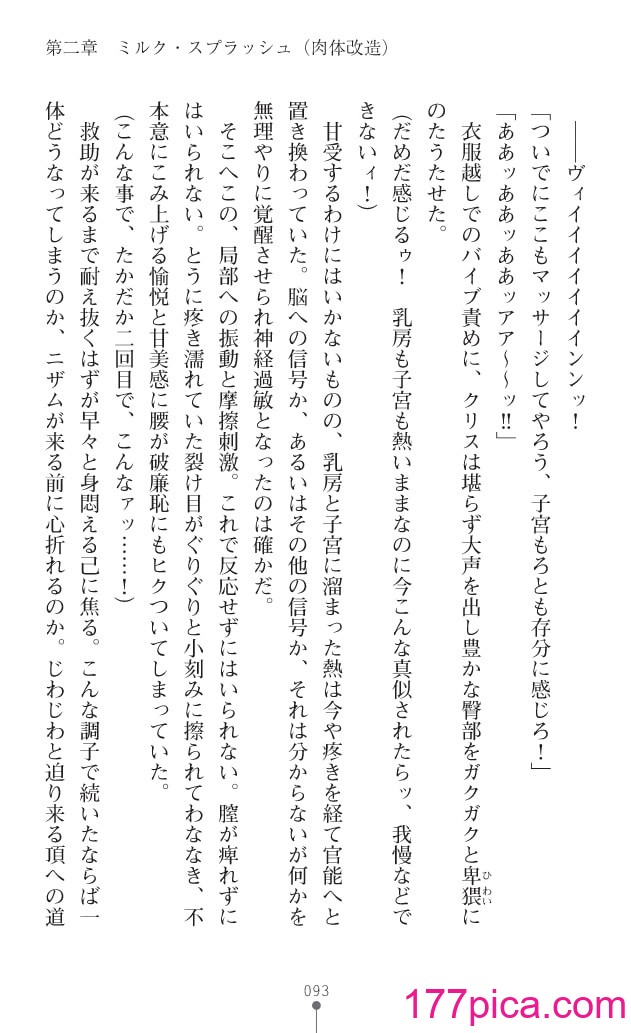 第二章　ミルク・スプラッシュ（肉体改造）
――ヴィイイイイイイインンッ！
「ついでにここもマッサージしてやろう、子宮もろとも存分に感じろ！」
「ああッああッああッアア～～ッ!!」
衣服越しでのバイブ責めに、クリスは堪らず大声を出し豊かな臀部をガクガクと卑猥ひわいに
のたうたせた。
（だめだ感じるゥ！　乳房も子宮も熱いままなのに今こんな真似されたらッ、我慢などで
きないィ！）
甘受するわけにはいかないものの、乳房と子宮に溜まった熱は今や疼きを経て官能へと
置き換わっていた。脳への信号か、あるいはその他の信号か、それは分からないが何かを
無理やりに覚醒させられ神経過敏となったのは確かだ。
そこへこの、局部への振動と摩擦刺激。これで反応せずにはいられない。膣が痺れずに
はいられない。とうに疼き濡れていた裂け目がぐりぐりと小刻みに擦られてわななき、不
本意にこみ上げる愉悦と甘美感に腰が破廉恥にもヒクついてしまっていた。
（こんな事で、たかだか二回目で、こんなァッ……！）
救助が来るまで耐え抜くはずが早々と身悶える己に焦る。こんな調子で続いたならば一
体どうなってしまうのか、ニザムが来る前に心折れるのか。じわじわと迫り来る頂への道
093
177pica.com